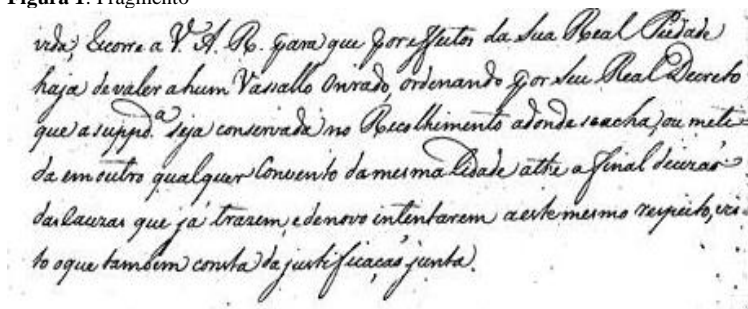 Figura 1. Fragmento
vida; Recorre a V. A. R. para que por effeitos da Sua Real Piedade
haja de valer a hum Vassallo Onrado, ordenando por Seu Real Decreto
que a suppd.ª seja conservada no Recolhimento adonde se acha, ou meti=
da em outro qualquer Convento da mesma Cidade athe a final decizaõ
das Cauzas que já trazem, e de novo intentarem a este mesmo respeito, vis=
to o que tambem consta da justificaçaõ junta.